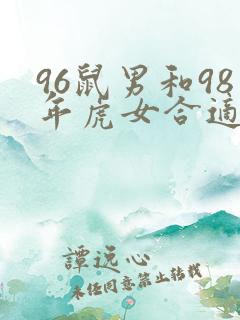 96鼠男和98
年虎女合适
譚远心
未任同意禁止转载